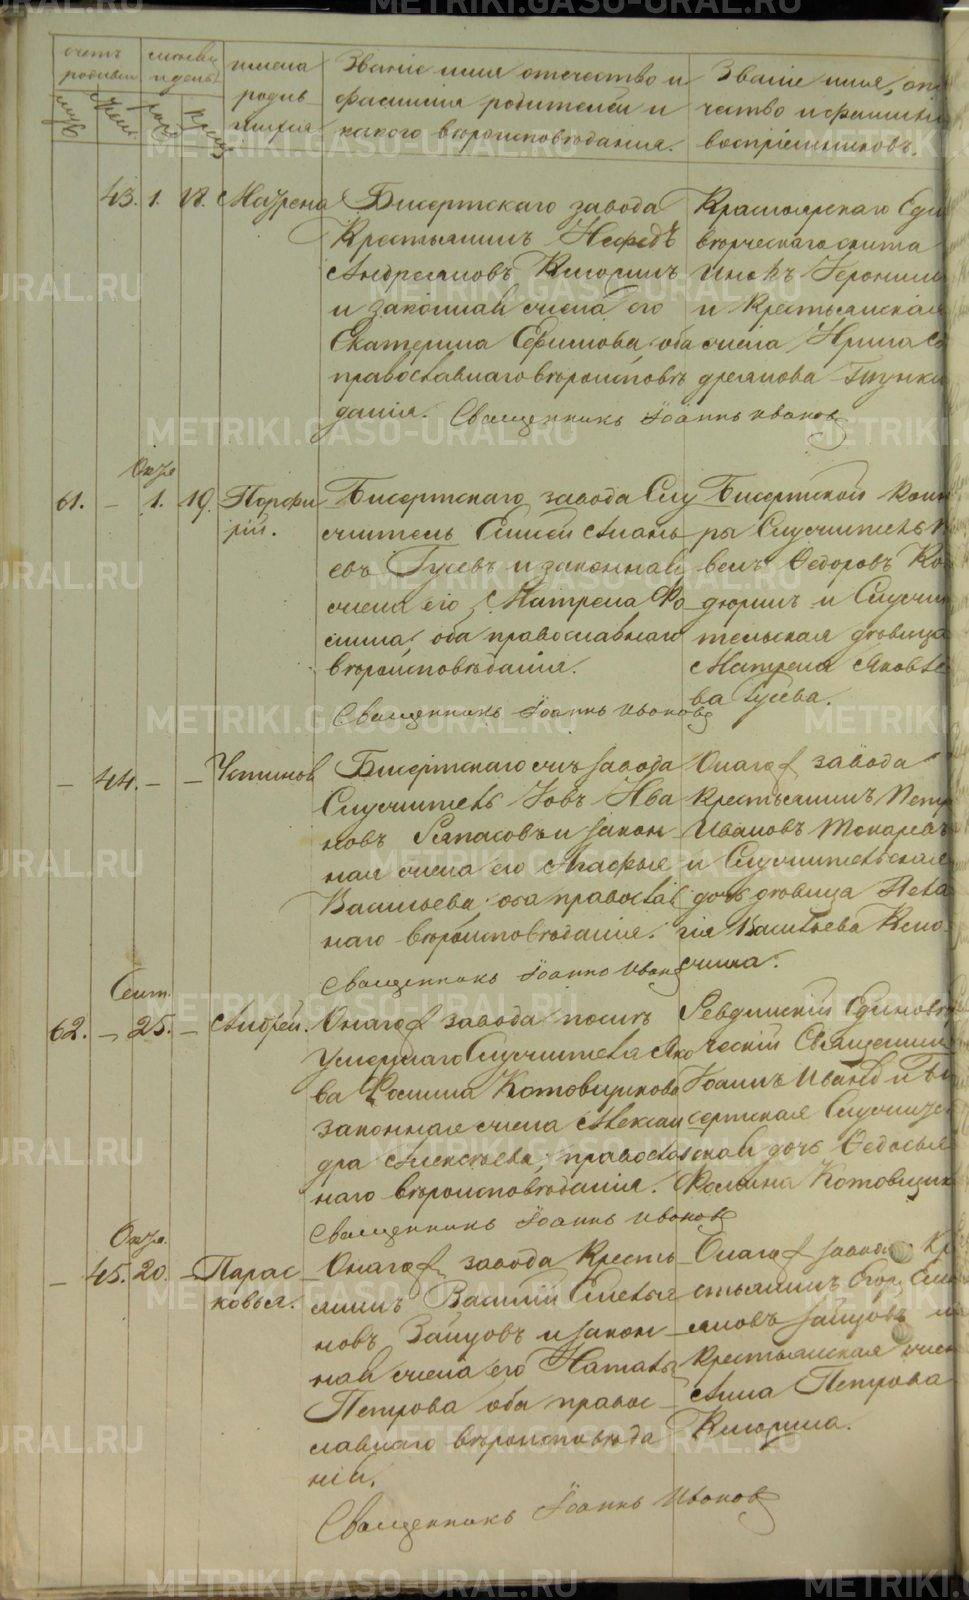 METRIKI.GASO-URAL.RU
счетъ родивш.
мужс.
женс.
месяцъ и день
рожд.
крещ.
имена родив-
шихся
Званіе имя отечество и
фамилія родителей и
какого вѣроисповѣданія.
Званіе имя, оте
чество и фамилія
воспріемниковъ.
43. 1. 17. Мавра
Бисертскаго завода
Крестьянинъ Нефедъ
Андреяновъ
и законная жена его
Екатерина Ефимова оба
православнаго вѣроисповѣ
данія.
Священникъ Іоаннъ Ивановъ
Красноярскаго Еди
вѣрческаго скита
Инокъ Іеронимъ
и Крестьянская
жена Ирина
дреянова
Октр.
61. — 1. 19. Порфи
рій.
Бисертскаго завода Слу
житель Ананъ
евъ Гусевъ и законная
жена его Матрена Фо
мина, оба православнаго
вѣроисповѣданія.
Священникъ Іоаннъ Ивановъ
Бисертской кон
ры Служитель П
велъ Федоровъ Ко
дюринъ и Служи
тельская дѣвица
Матрена Яковле
ва Гусева.
— 44. — — Устинов
Бисертскаго жъ завода
Служитель Іовъ Ива
новъ и закон
ная жена его Агафья
Васильева оба православ
наго вѣроисповѣданія.
Священникъ Іоаннъ Иванов
Онагоже завода
Крестьянинъ Петръ
Ивановъ Токаревъ
и Служительская
дочь дѣвица Пела
гія Васильева
Сент.
62. — 25. — Андрей.
Онагоже завода посилъ
умершаго Служителя Яко
ва Фомина Котовщикова
законная жена Алексан
дра Алексѣева, православ
наго вѣроисповѣданія.
Священникъ Іоаннъ Ивановъ
Ревдинскій Единовѣр
ческій Священник
Іоаннъ Ивановъ и Би
сертская Служите
ская дочь Федосья
Фомина Котовщик
Октр.
— 45. 20. — Парас
ковья.
Онагоже завода Кресть
янинъ Василій Емелья
новъ Зайцовъ и закон
ная жена его Наталья
Петрова оба правос
лавнаго вѣроисповѣда
нія.
Священникъ Іоаннъ Ивановъ
Онагоже завода Кре
стьянинъ Егоръ Емел
яновъ Зайцовъ и
Крестьянская жен
Анна Петрова
Кногина.